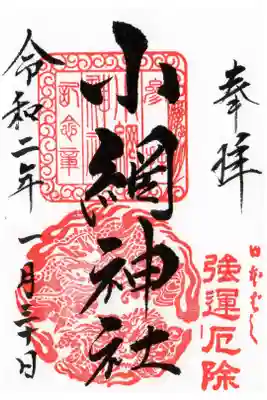 奉拝
日本ばし
強運厄除
小網神社
令和二年一月三十日